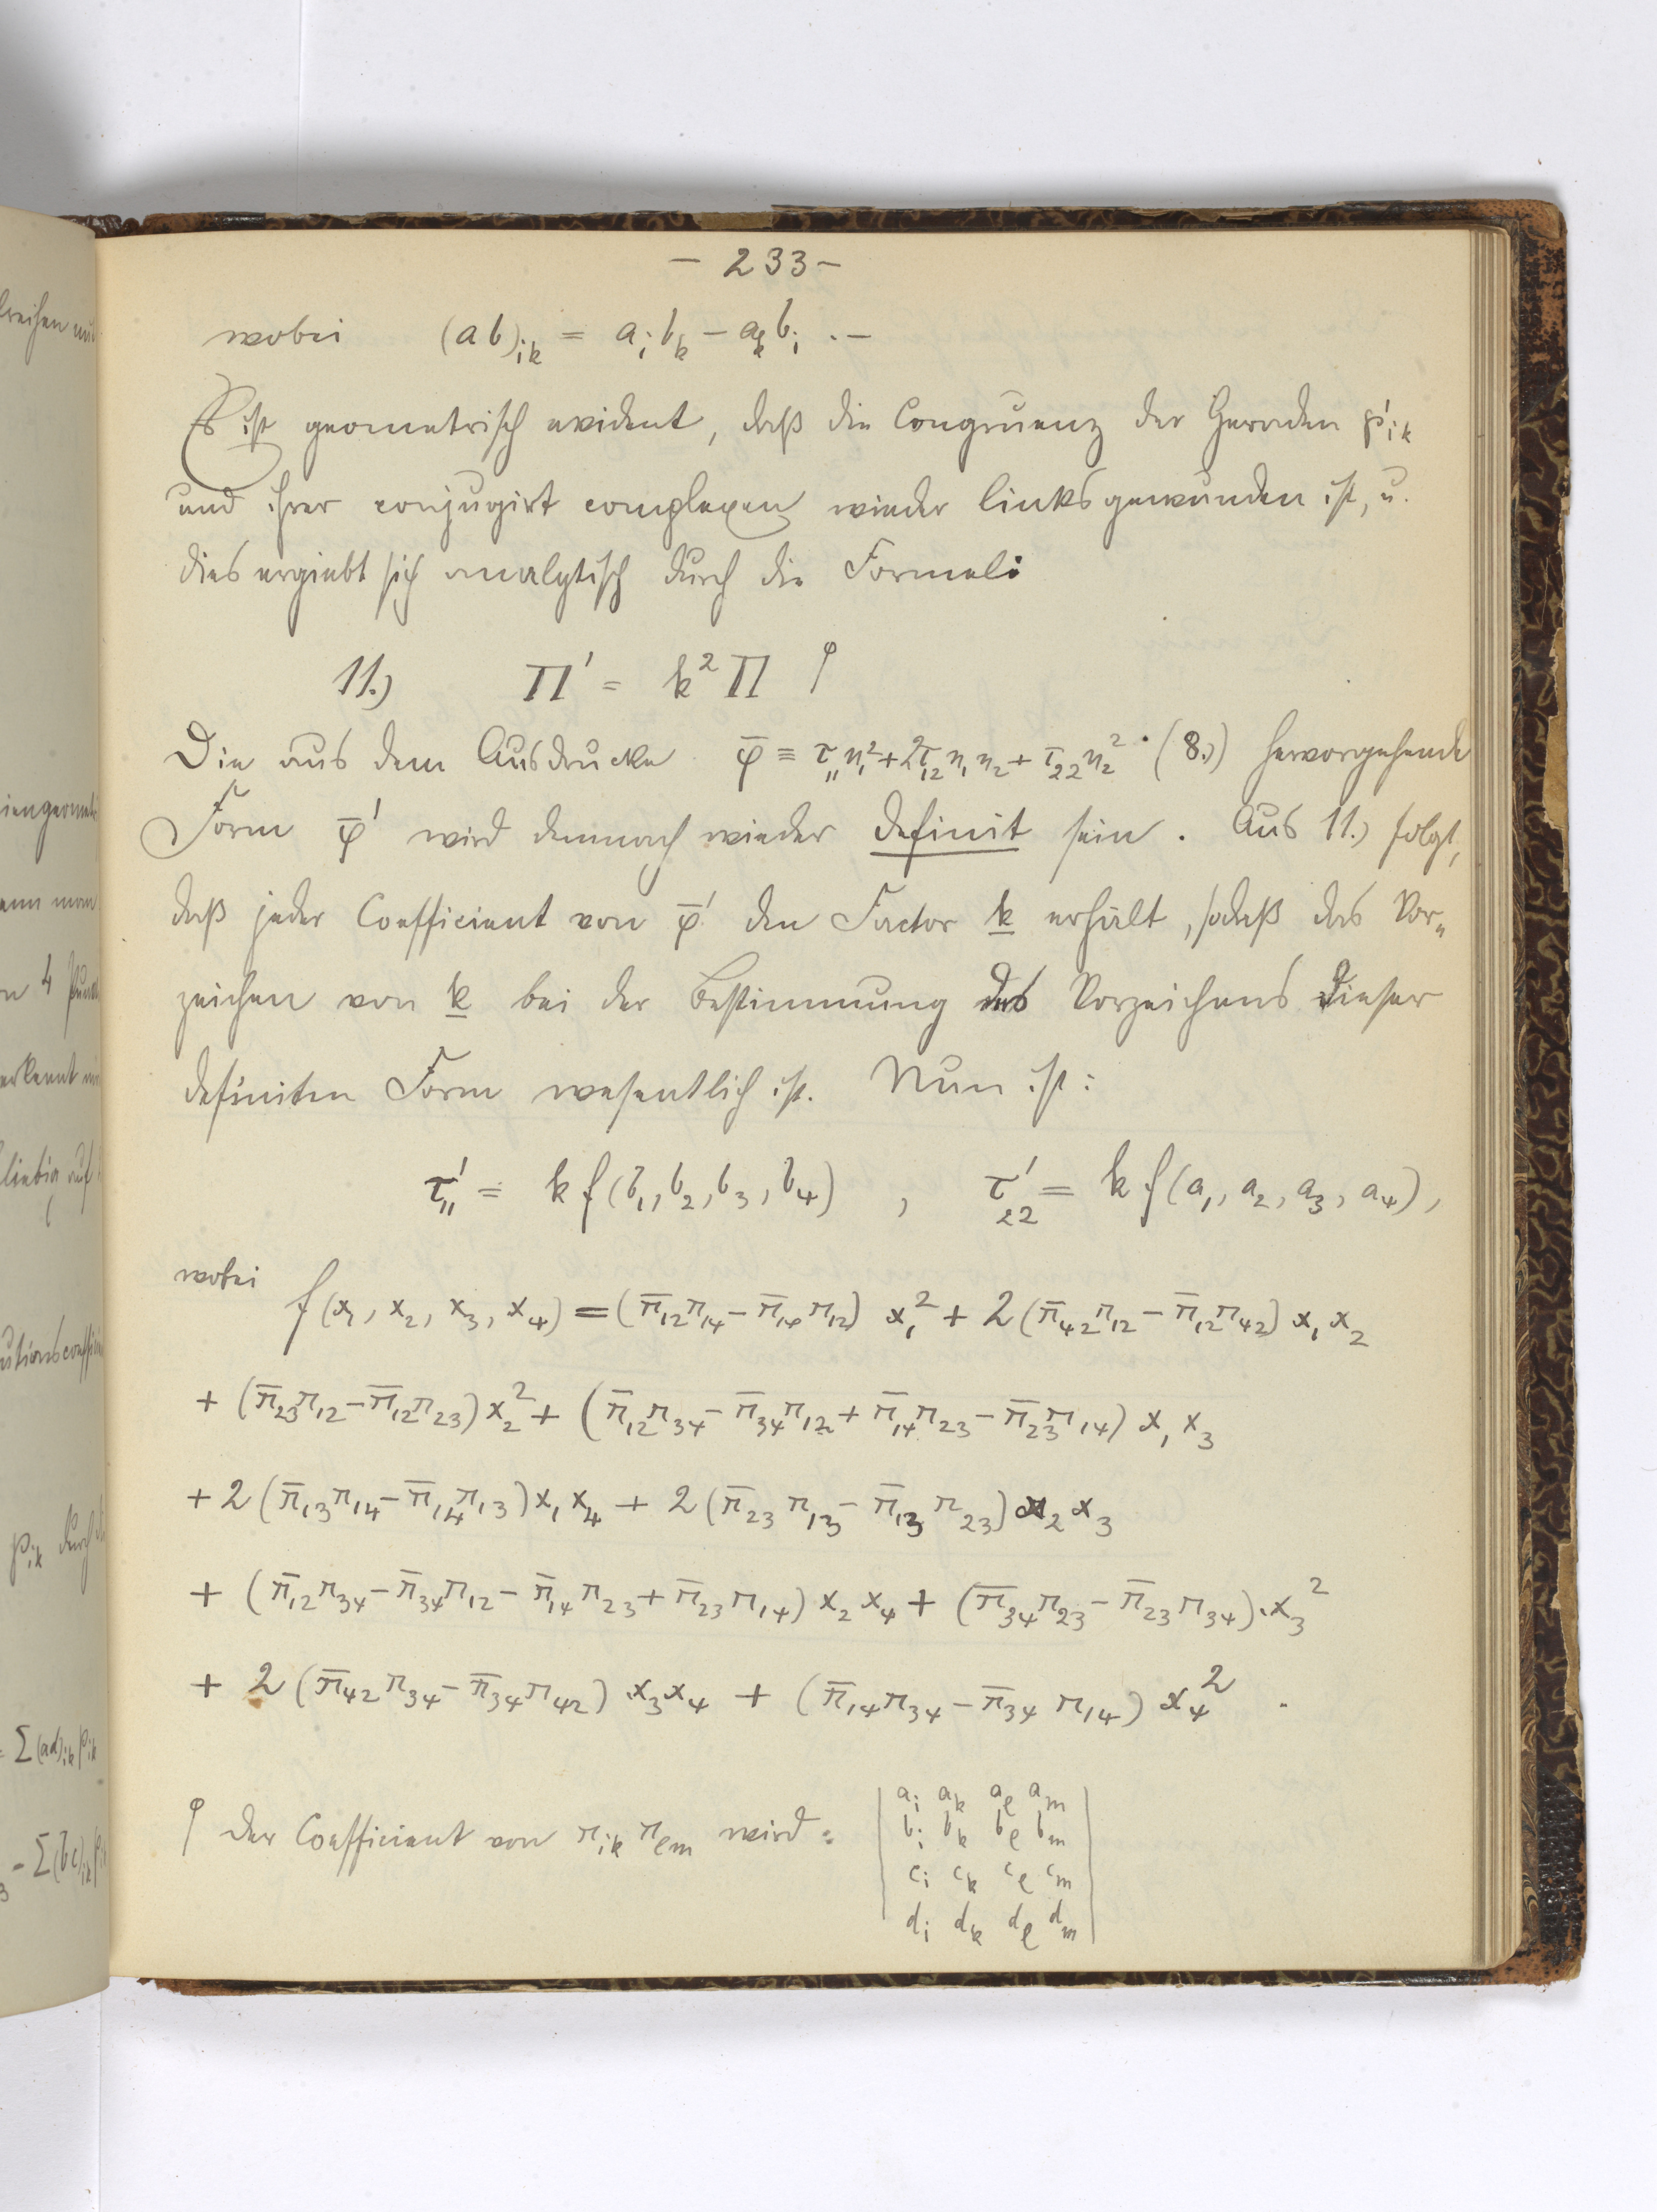 – 233 –
wobei (ab)_{ik} = a_i b_k – a_k b_i . –
Es ist geometrisch evident, daß die Congruenz der Geraden p'_{ik}
und ihrer conjugirt complexen wieder linksgewunden ist, u.
dies ergiebt sich analytisch durch die Formel:
11.) Π' = k² Π φ
Die aus dem Ausdrucke φ̄ ≡ τ_{11}η_1² + 2τ_{12}η_1η_2 + τ_{22}η_2² (8.) hervorgehende
Form φ̄' wird demnach wieder definit sein. Aus 11.) folgt,
daß jeder Coefficient von φ̄' den Factor k erhält, sodaß das Vor„
zeichen von k bei der Bestimmung des Vorzeichens dieser
definiten Form wesentlich ist. Nun ist:
τ'_{11} = k f(b_1, b_2, b_3, b_4) , τ'_{22} = k f(a_1, a_2, a_3, a_4),
wobei f(x_1, x_2, x_3, x_4) = (π̄_{12}π_{14} – π̄_{14}π_{12}) x_1² + 2(π̄_{42}π_{12} – π̄_{12}π_{42}) x_1 x_2
+ (π̄_{23}π_{12} – π̄_{12}π_{23}) x_2² + (π̄_{12}π_{34} – π̄_{34}π_{12} + π̄_{14}π_{23} – π̄_{23}π_{14}) x_1 x_3
+ 2(π̄_{13}π_{14} – π̄_{14}π_{13}) x_1 x_4 + 2(π̄_{23}π_{13} – π̄_{13}π_{23}) x_2 x_3
+ (π̄_{12}π_{34} – π̄_{34}π_{12} – π̄_{14}π_{23} + π̄_{23}π_{14}) x_2 x_4 + (π̄_{34}π_{23} – π̄_{23}π_{34}) . x_3²
+ 2(π̄_{42}π_{34} – π̄_{34}π_{42}) x_3 x_4 + (π̄_{14}π_{34} – π̄_{34}π_{14}) x_4² .
φ Der Coefficient von π_{ik} π_{lm} wird =
a_i a_k a_l a_m
b_i b_k b_l b_m
c_i c_k c_l c_m
d_i d_k d_l d_m